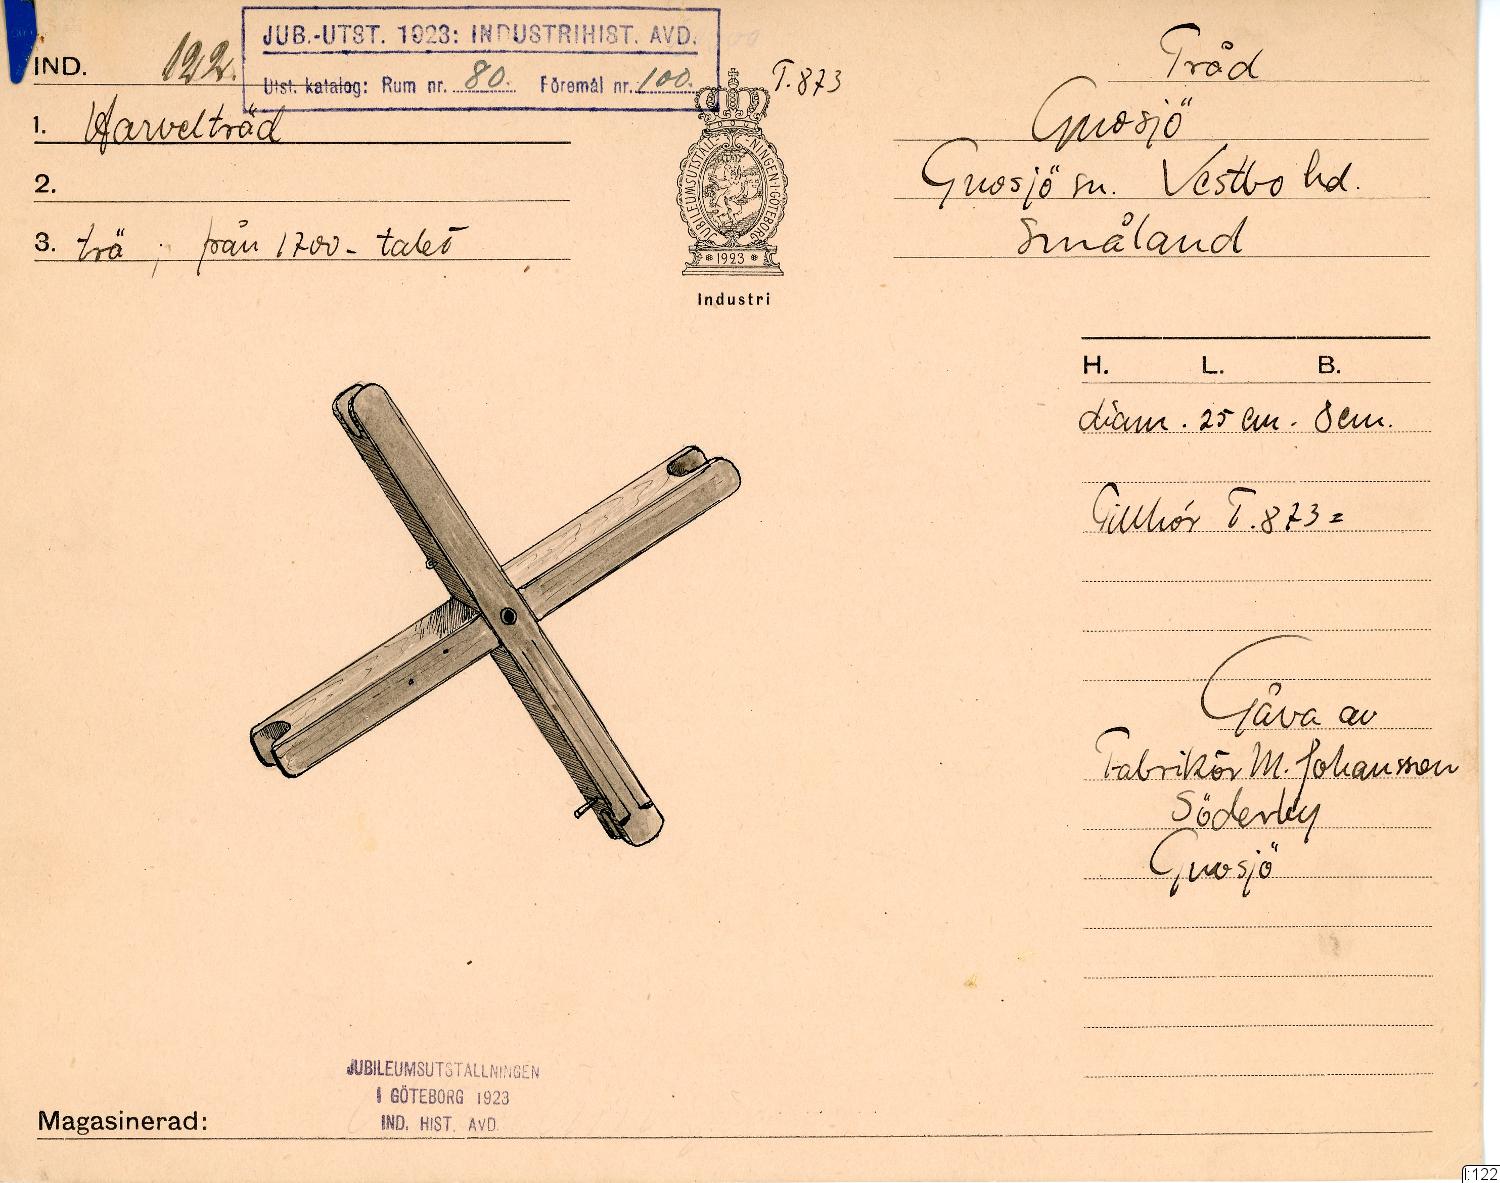 JUB.-UTST. 1923: INDUSTRIHIST. AVD.
Utst. katalog: Rum nr. 80. Föremål nr. 100.
IND. 122.
T. 873
1. Harvelträd
2.
3. trä ; från 1700-talet
JUBILEUMSUTSTÄLLNINGEN I GÖTEBORG
1923
Industri
Tråd
Gnosjö
Gnosjö sn. Vestbo hd.
Småland
H. L. B.
diam. 25 cm. 8 cm.
Tillhör T. 873 =
Gåva av
Fabrikör M. Johansson
Söderby
Gnosjö
JUBILEUMSUTSTÄLLNINGEN
I GÖTEBORG 1923
IND. HIST. AVD.
Magasinerad:
I:122